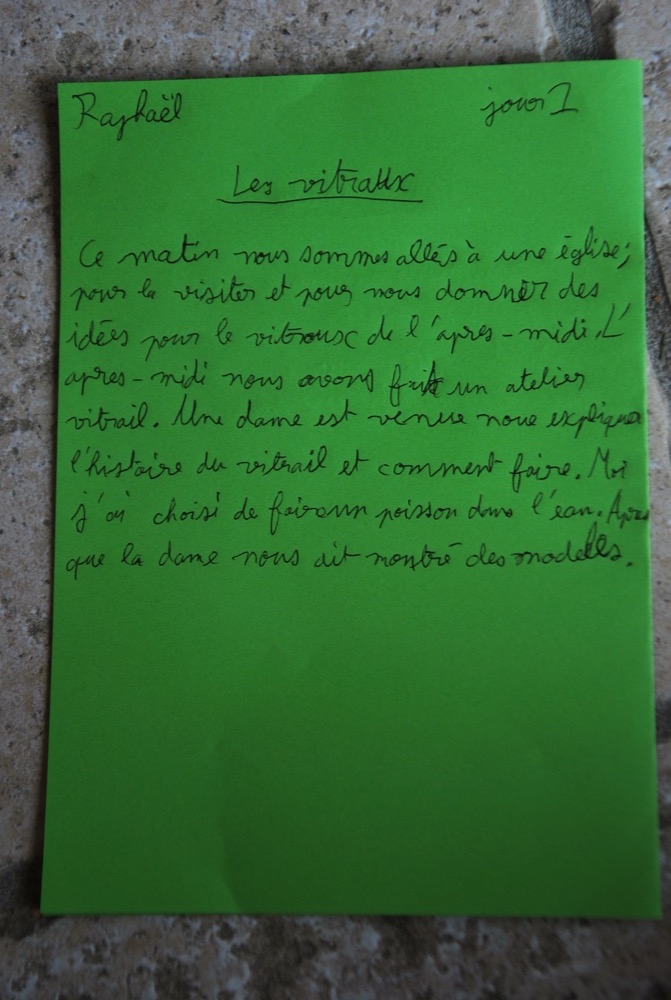 Raphaël jour 1
Les vitraux
Ce matin nous sommes allés à une église;
pour la visiter et pour nous donner des
idées pour le vitraux de l'apres-midi. L'
apres-midi nous avons fait un atelier
vitrail. Une dame est venue nous expliquer
l'histoire du vitrail et comment faire. Moi
j'ai choisi de faire un poisson dans l'eau. Apres
que la dame nous ait montré des modelles.